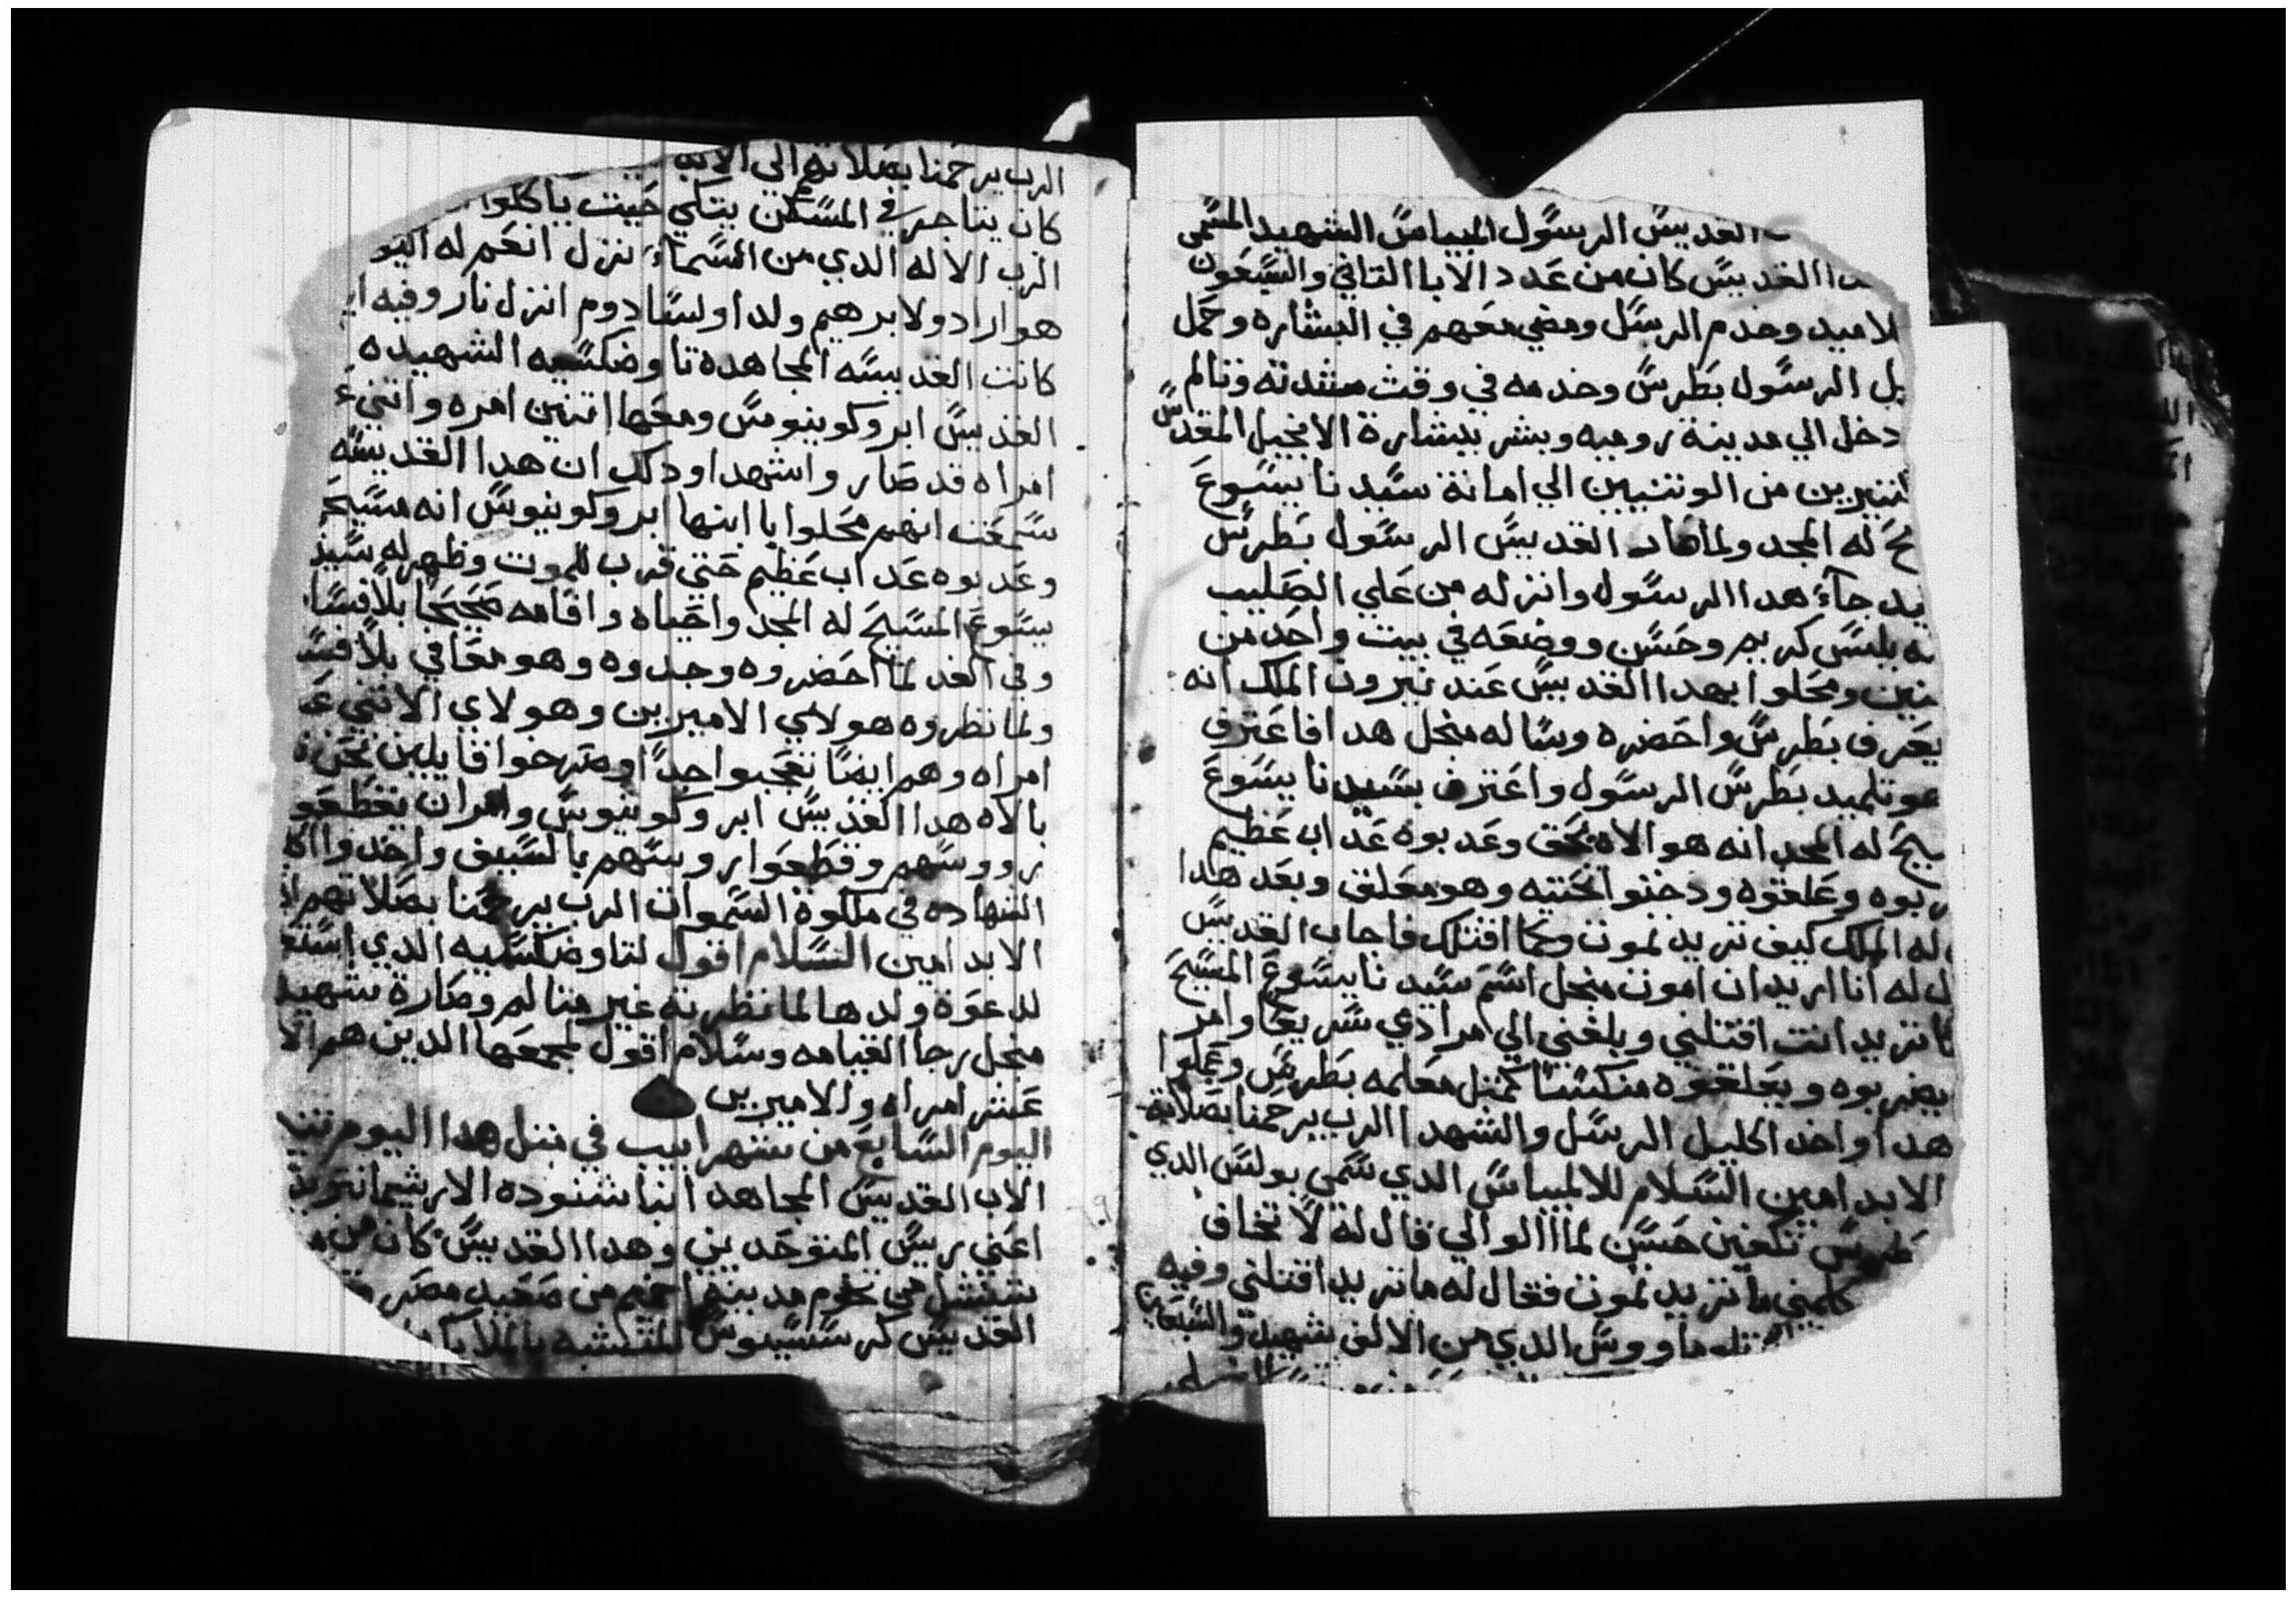 القديس الرسول المبياس الشهيد المسمى
القديس كان من عدد الابا التاني والسبعون
لاميد وخدم الرسل ومضي معهم في البشاره وحمل
الرسول بطرس وخدمه في وقت شدته وتالم
دخل الي مدينة روميه وبشر ببشارة الانجيل المقدس
من الوتنيين الي امانة سيدنا يسوع
له المجد ولما القديس الرسول بطرس
جاء هدا الرسول وانزله من علي الصليب
كريم وحسن ووضعه في بيت واحد من
ومحلوا بهدا القديس عند نيرون الملك انه
يعرف بطرس واحضره وساله منجل هدا فاعترف
تلميد بطرس الرسول واعترف بسيدنا يسوع
له المجد انه هو الاه بحق وعدبوه عداب عظيم
وعلقوه ودخنوا تحته وهو معلق وبعد هدا
له الملك كيف تريد تموت وكما اقتلك فاجاب القديس
له انا اريد ان اموت منجل اسم سيدنا يسوع المسيح
تريد انت اقتلني وبلغني الي مرادي سريعا وامر
يضربوه ويعلقوه منكسا كمتل معلمه بطرس وعملوا
هدا واخد اكليل الرسل والشهدا الرب يرحمنا بصلاته
الابد امين السلام للالمبياس الدي سمي بولس الدي
تكفين حسن لما الوالي قال له لا تخاف
كلمني ما تريد تموت فقال له ما تريد اقتلني وفيه
الدي من الالف شهيد والسبعين
الرب يرحمنا بصلاته الي الابد
كان يتاجر في المسكن يتكي حيث ياكلوا
الرب الاله الدي من السماء نزل انعم له
هو اراد ولابرهيم ولد اولسادوم انزل نار وفيه
كانت القديسه المجاهدة تاوضكسيه الشهيده
القديس ابروكونيوس ومعها اتنين امره واتني
امراه قد صار واشهدا ودلك ان هدا القديسه
سمعت انهم محلوا بابنها ابروكونيوس انه مسيح
وعدبوه عداب عظيم حتي قرب للموت وظهر له سيد
يسوع المسيح له المجد واحياه واقامه صحيحا بلا فسا
وفي الغد لما احضروه وجدوه وهو معافي بلا فس
ولما نظروه هولاي الاميرين وهولاي الاتني ع
امراه وهم ايضا تعجبوا جدا وصرخوا قايلين نحن
بالاه هدا القديس ابروكونيوس وامر ان يقطعو
رووسهم وقطعوا روسهم بالسيف واخدوا
الشهاده في ملكوة السموات الرب يرحمنا بصلاتهم
الابد امين السلام اقول لتاوضكسيه الدي
لدعوة ولدها لما نظرته غير متالم وصارة شهيد
منجل رجا القيامه وسلام اقول لمجمعها الدين هم
عشر امراه والاميرين
اليوم السابع من شهر ابيب في متل هدا اليوم
الاب القديس المجاهد انبا شنوده الارشيمانتريد
اعني ريس المتوحدين وهدا القديس كان من
من تخوم مدينة اخميم من صعيد مصر
القديس كرستيوس المتشبه بالملا